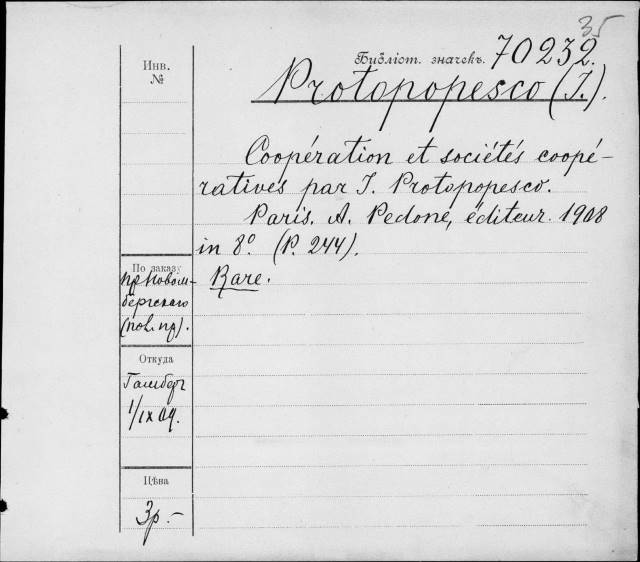 35
Библіот. значекъ. 70232.
Protopopesco (I.).
Инв.
№
Coopération et sociétés coopé-
ratives par I. Protopopesco.
Paris. A. Pedone, éditeur. 1908
in 8º. (P. 244).
Rare.
По заказу
пр Новом-
бергскаго
(пол. пр).
Откуда
1/IX 09.
Цѣна
3р.-